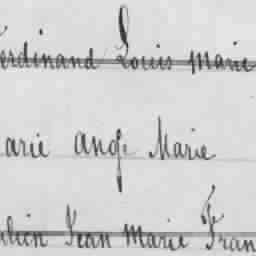 erdinand Louis Marie
arie ange Marie
ulien Jean Marie Fran